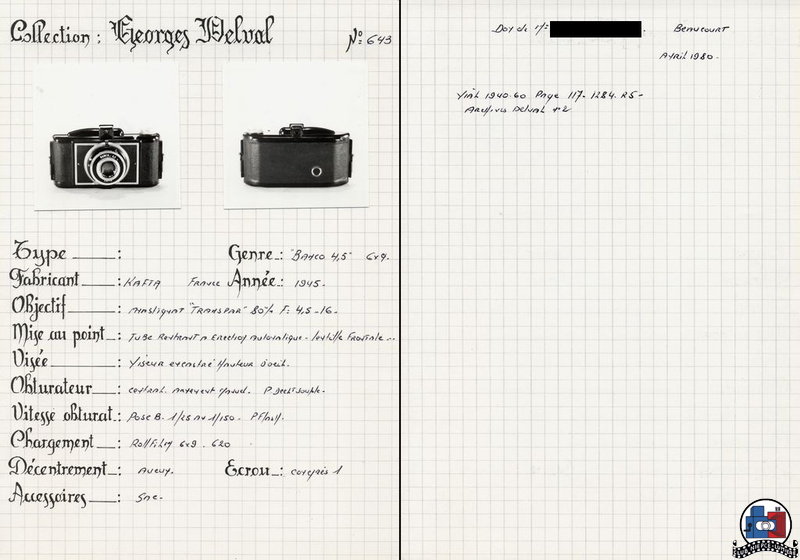 Collection : Georges Delval
Nº 643
Type : Genre : "Banco 4,5" 6x9.
Fabricant : KAFTA France Année : 1945.
Objectif : "TRANSPAR" F: 4,5-16.
Mise au point : Tube Rentrant automatique. Frontale ...
Visée : Viseur Hauteur d'oeil.
Obturateur : armement souple.
Vitesse obturat. : Pose B. 1/25 au 1/150.
Chargement : RollFilm 6x9. 620
Décentrement : Aucun. Ecrou : congrès 1
Accessoires : Sac.
Don de Mr Beaucourt
Avril 1980.
Vial 1940-60 Page 117. 1284. R5-
Archives Delval